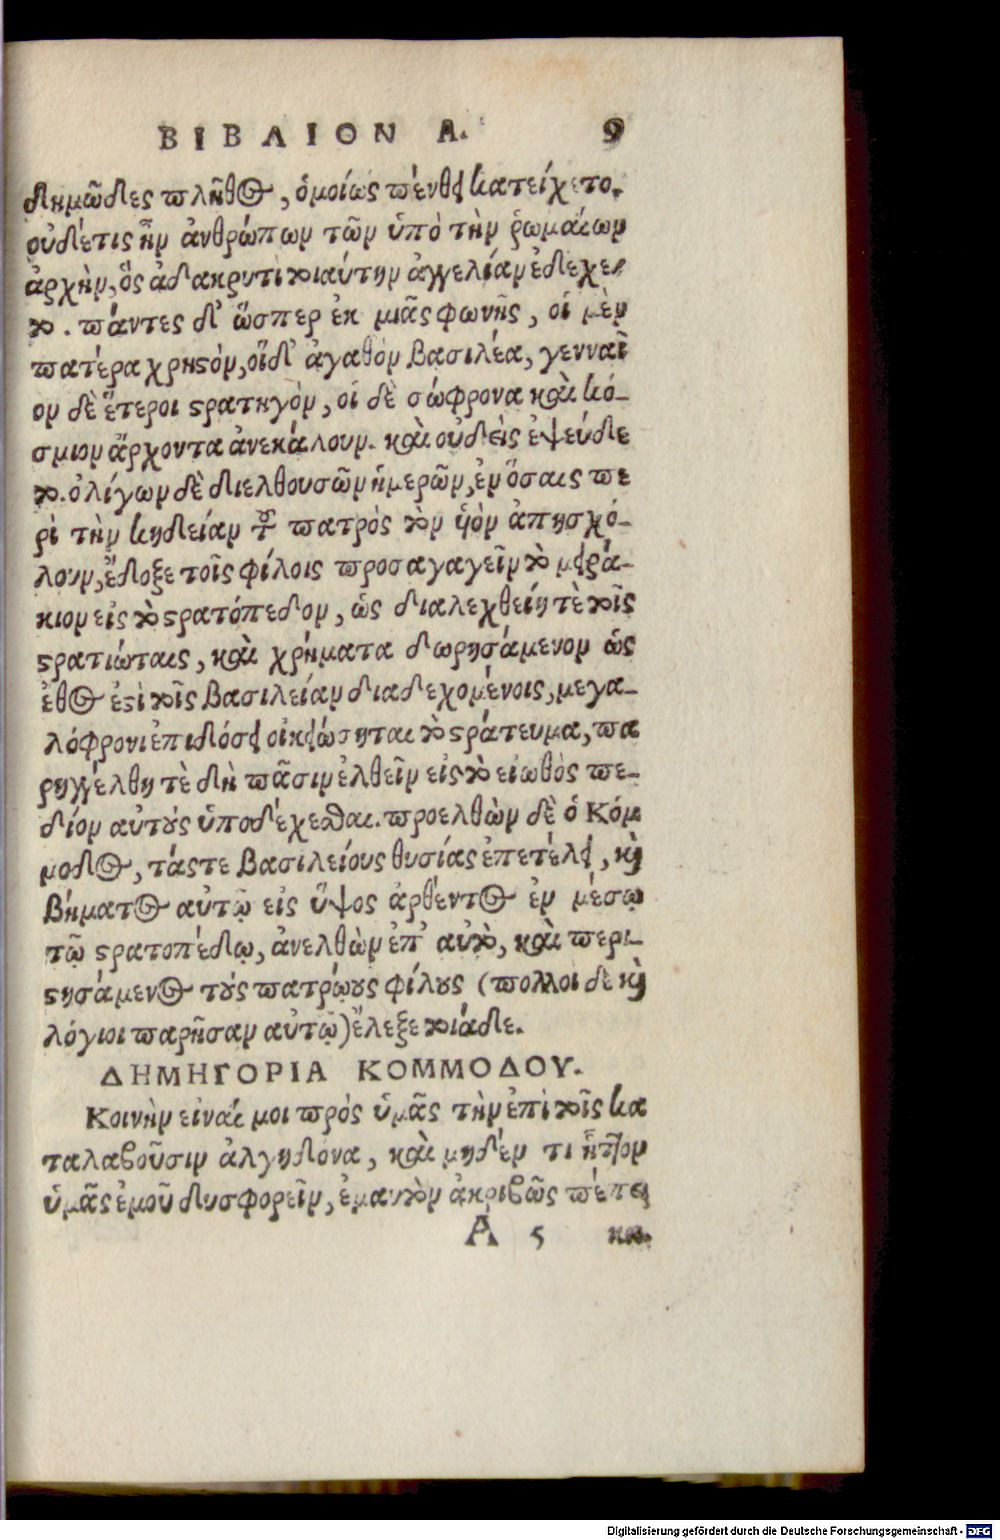 ΒΙΒΛΙΟΝ Α. 9
δημῶδες πλῆθος, ὁμοίως πένθει κατείχετο.
οὐδέτις ἦν ἀνθρώπων τῶν ὑπὸ τὴν ῥωμαίων
ἀρχὴν, ὃς ἀδακρυτὶ τοιαύτην ἀγγελίαν ἐδέχε-
το. πάντες δ' ὥσπερ ἐκ μιᾶς φωνῆς, οἱ μὲν
πατέρα χρηστὸν, οἵδ' ἀγαθὸν βασιλέα, γενναῖ
ον δὲ ἕτεροι στρατηγὸν, οἱ δὲ σώφρονα καὶ κό-
σμιον ἄρχοντα ἀνεκάλουν. καὶ οὐδεὶς ἐψεύδε
το. ὀλίγων δὲ διελθουσῶν ἡμερῶν, ἐν ὅσαις πε
ρὶ τὴν κηδείαν τοῦ πατρὸς τὸν υἱὸν ἀπησχό-
λουν, ἔδοξε τοῖς φίλοις προσαγαγεῖν τὸ μειρά-
κιον εἰς τὸ στρατόπεδον, ὡς διαλεχθείη τὲ τοῖς
στρατιώταις, καὶ χρήματα δωρησάμενον ὡς
ἔθος ἐστὶ τοῖς βασιλείαν διαδεχομένοις, μεγα-
λόφρονι ἐπιδόσει οἰκειώσηται τὸ στράτευμα, πα
ρηγγέλθη τὲ δὴ πᾶσιν ἐλθεῖν εἰς τὸ εἰωθὸς πε-
δίον αὐτοὺς ὑποδέχεσθαι. προελθὼν δὲ ὁ Κόμ
μοδος, τάς τε βασιλείους θυσίας ἐπετέλει, καὶ
βήματος αὐτῷ εἰς ὕψος ἀρθέντος ἐν μέσῳ
τῷ στρατοπέδῳ, ἀνελθὼν ἐπ' αὐτὸ, καὶ περι-
στησάμενος τοὺς πατρῴους φίλους (πολλοι δε καὶ
λόγιοι παρῆσαν αὐτῷ) ἔλεξε τοιάδε.
ΔΗΜΗΓΟΡΙΑ ΚΟΜΜΟΔΟΥ.
Κοινὴν εἶναί μοι πρὸς ὑμᾶς τὴν ἐπὶ τοῖς κα
ταλαβοῦσιν ἀλγηδόνα, καὶ μηδέν τι ἧττον
ὑμᾶς ἐμοῦ δυσφορεῖν, ἐμαυτὸν ἀκριβῶς πέπει
Α 5 κα.
Digitalisierung gefördert durch die Deutsche Forschungsgemeinschaft - DFG